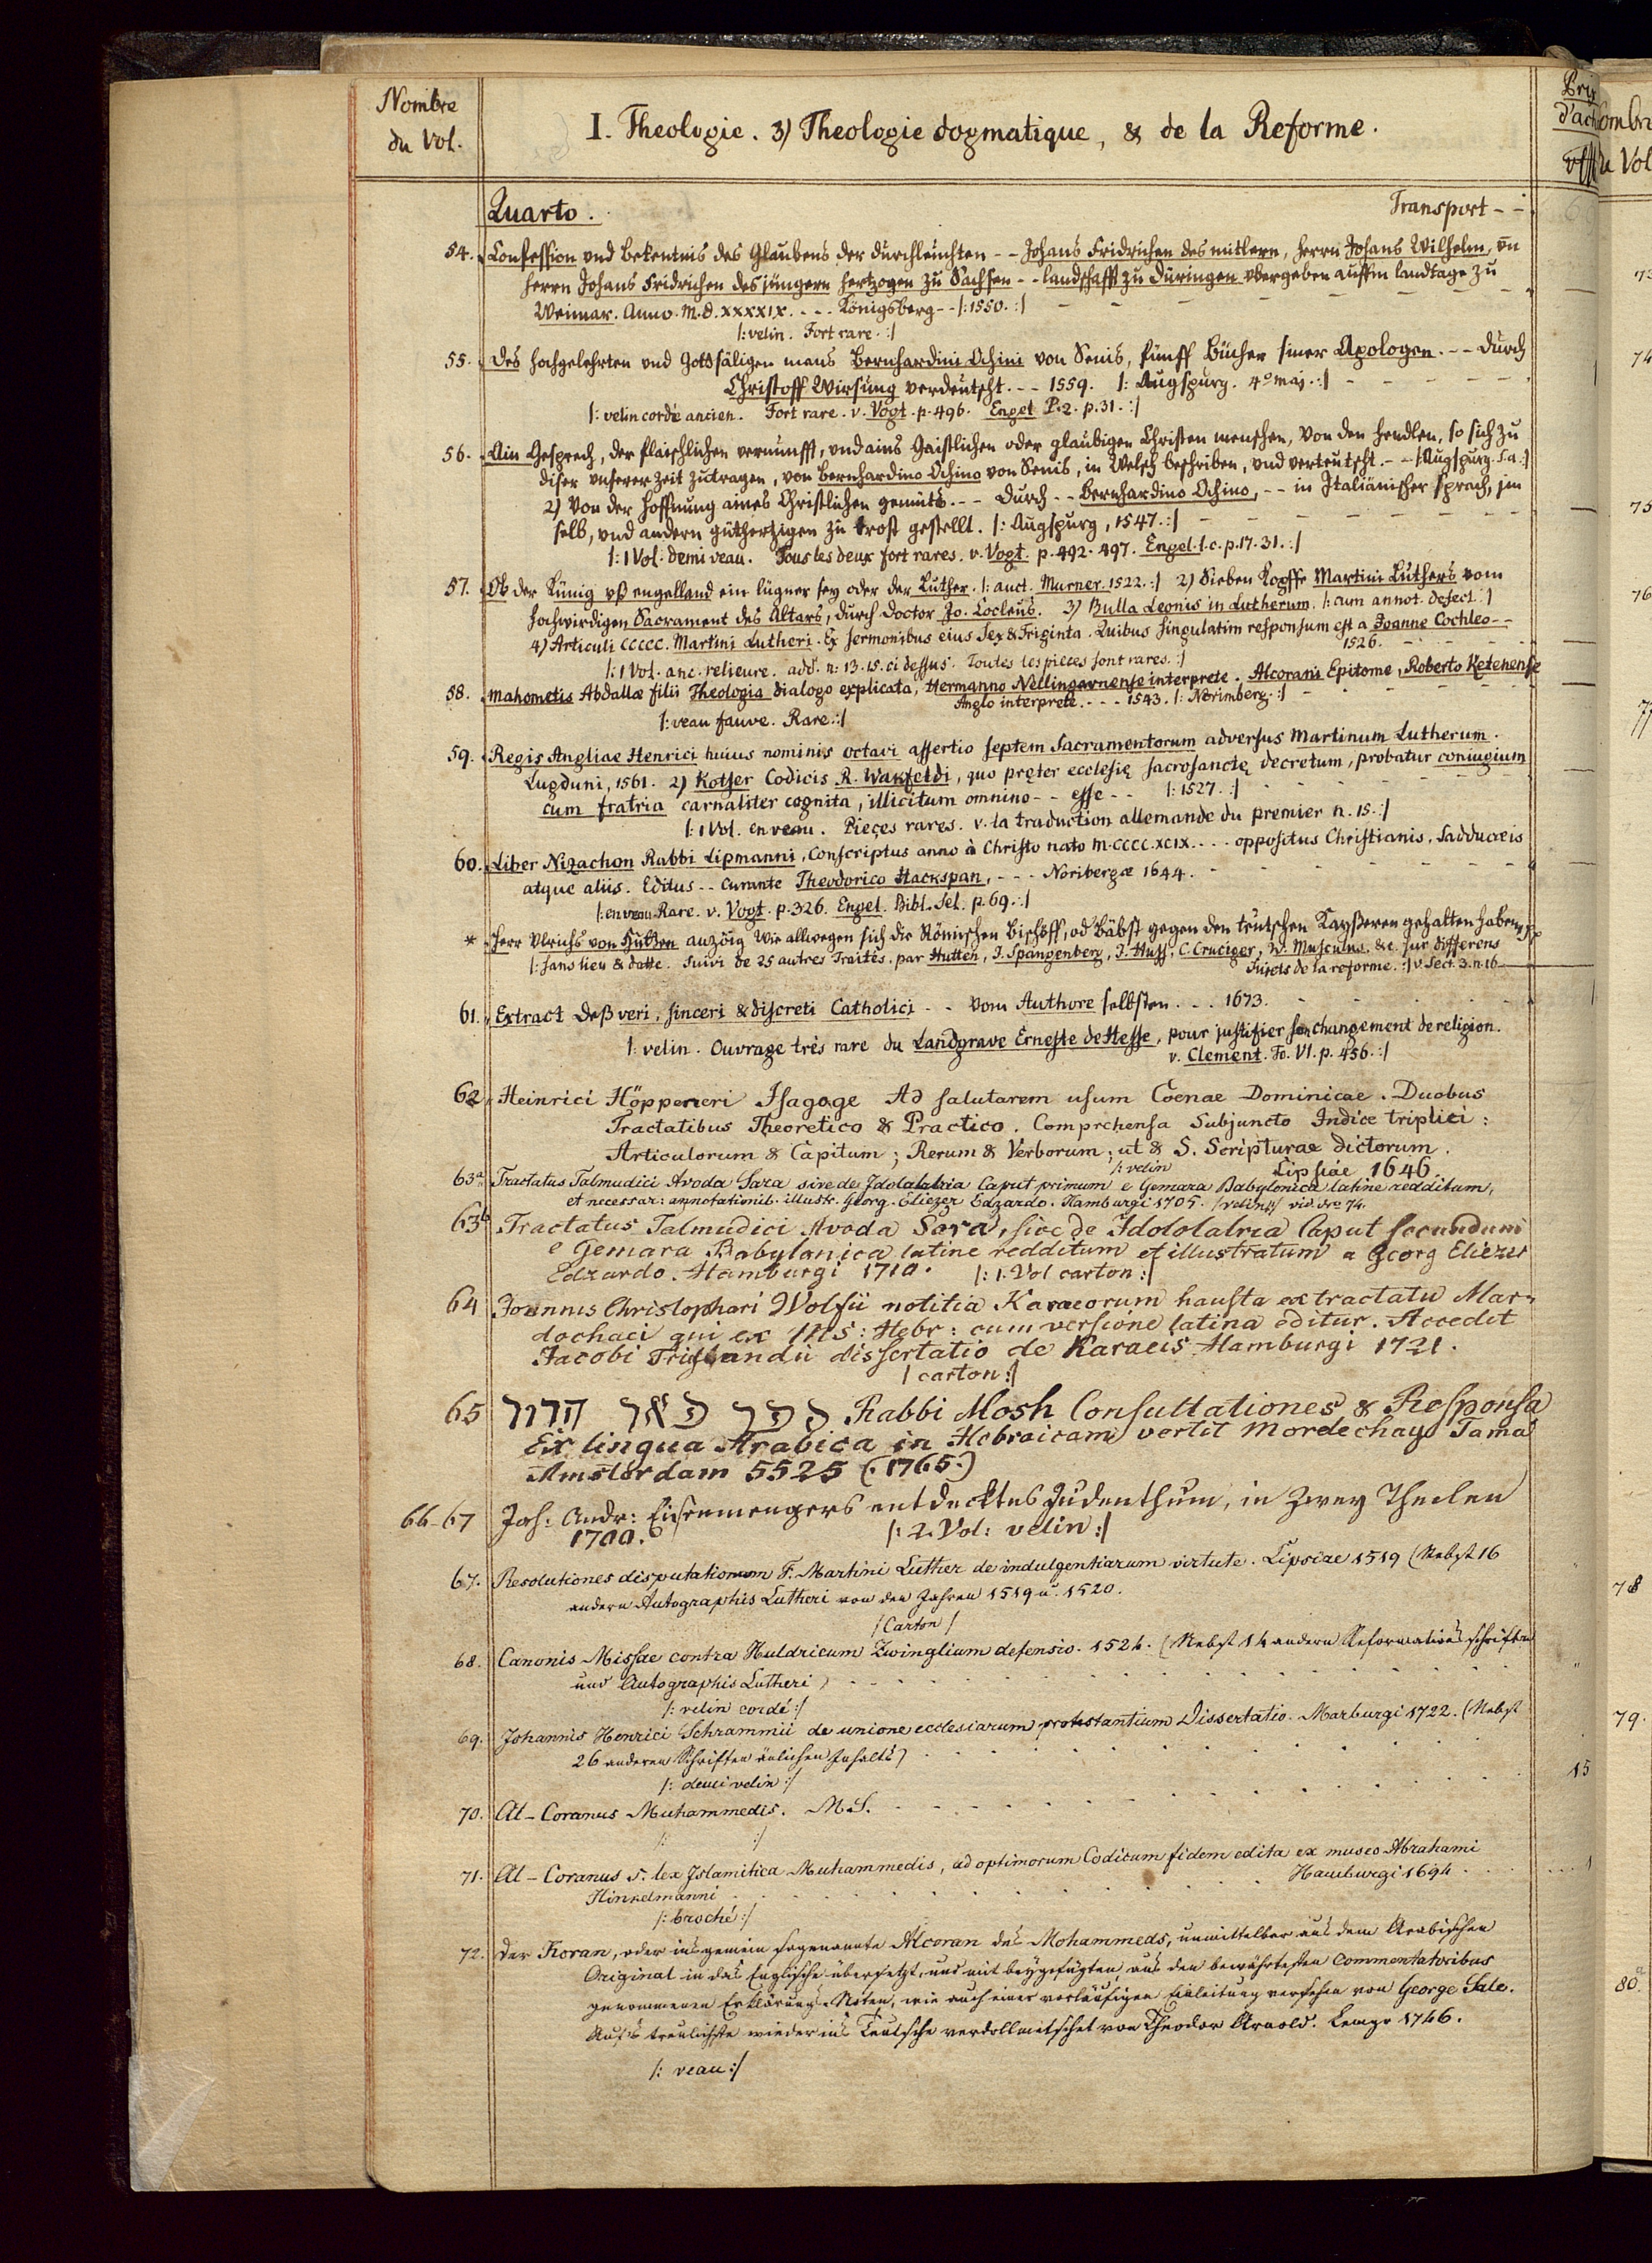 Nombre
du Vol.
I. Theologie. 3) Theologie dogmatique, & de la Reforme.
Prix
Quarto. Transport - -
54. Confession und bekentnis des Glaubens der durchleuchten - - Johans Fridrichen des mitlern, herrn Johans Wilhelm, vn
herrn Johans Fridrichen des jüngern hertzogen zu Sachsen - - landschafft zu Düringen vbergeben auffm landtage zu
Weimar. Anno. M.D.XXXXIX. - - - Königsberg - - |: 1550. :|
|: velin. Fort rare. :|
55. Des hochgelehrten und Gottsäligen mans Bernhardini Ochini von Senis, fünff Bücher seiner Apologen. - - Durch
Christoff Wirsung verdeutscht. - - 1559. |: Augspurg. 4º maj. :|
|: velin cordé ancien. Fort rare. v. Vogt. p. 496. Engel P. 2. p. 31. :|
56. Ain Gesprech, der flaischlichen vernunfft, und ains Gaistlichen oder glaubigen Christen menschen, Von den hendlen, so sich zu
diser unserer zeit zutragen, von Bernhardino Ochino von Senis, in Welsch beschriben, und verteutscht. - - |: Augspurg. s.a. :|
2) Von der hoffnung aines Christlichen gemüts. - - Durch - - Bernhardino Ochino, - - in Italiänischer sprach, jm
selb, und andern gutherzigen zu trost gestellt. |: Augspurg, 1547. :|
|: 1 Vol. demi veau. Tous les deux fort rares. v. Vogt. p. 492. 497. Engel. l. c. p. 17. 31. :|
57. Ob der Künig uß engelland ein lügner sey oder der Luther. |: auct. Murner. 1522. :| 2) Sieben Köpffe Martini Luthers vom
hochwirdigen Sacrament des Altars, durch Doctor Jo. Cocleus. 3) Bulla Leonis in Lutherum. |: cum annot. defect. :|
4) Articuli CCCCC. Martini Lutheri. Ex sermonibus eius Sex & Triginta. Quibus singulatim responsum est a Joanne Cochleo - -
1526.
|: 1 Vol. anc. relieure. add. n: 13. 15. ci dessus. Toutes les pieces sont rares. :|
58. Mahometis Abdallæ filii Theologia dialogo explicata, Hermanno Nellingaunense interprete. Alcorani Epitome, Roberto Ketenense
Anglo interprete. - - - 1543. |: Norimberg. :|
|: veau fauve. Rare. :|
59. Regis Angliae Henrici huius nominis octavi assertio septem Sacramentorum adversus Martinum Lutherum.
Lugduni, 1561. 2) Kotser Codicis R. Wakfeldi, quo pręter ecclesię sacrosanctę decretum, probatur coniugium
cum fratria carnaliter cognita, illicitum omnino - - esse - - |: 1527. :|
|: 1 Vol. en veau. Pieçes rares. v. la traduction allemande du premier n. 15. :|
60. Liber Nizachon Rabbi Lipmanni, Conscriptus anno à Christo nato M.CCCC.XCIX. - - - oppositus Christianis, Sadducæis
atque aliis. Editus - - Curante Theodorico Hackspan, - - - Noribergæ 1644.
|: en veau. Rare. v. Vogt. p. 326. Engel. Bibl. Sel. p. 69. :|
* Herr Ulrichs von Hutten anzöig Wie allwegen sich die Römischen Bischöff, od Bäbst gegen den teutschen Kayßeren gehalten haben
|: sans lieu & datte. Suivi de 25 autres Traités. par Hutten, J. Spangenberg, J. Huss, C. Cruciger, W. Musculus. &c. sur differens
Sujets de la reforme. :| v. Sect. 3. n. 16
61. Extract deß veri, sinceri & discreti Catholici - - vom Authore selbsten - - - 1673.
|: velin. Ouvrage trés rare du Landgrave Erneste de Hesse, pour justifier son changement de religion.
v. Clement. To. VI. p. 456. :|
62. Heinrici Höpperieri Isagoge Ad salutarem usum Coenae Dominicae. Duobus
Tractatibus Theoretico & Practico. Comprehensa Subjuncto Indice triplici:
Articulorum & Capitum; Rerum & Verborum; ut & S. Scripturae dictorum.
|: velin Lipsiae 1646
63a. Tractatus Talmudici Avoda Sara sive de Idololatria Caput primum e Gemara Babylonica latine redditum,
et necessar: annotationib. illustr. Georg. Eliezer Edzardo. Hamburgi 1705. |: velin :| vid. Nro 74.
63b Tractatus Talmudici Avoda Sara, sive de Idololatria Caput secundum
e Gemara Babylonica latine redditum et illustratum a Georg Eliezer
Edzardo. Hamburgi 1710. |: 1. Vol carton :|
64 Joannis Christophori Wolfii notitia Karaeorum hausta ex tractatu Mar-
dochaei qui ex MS: Hebr: cum versione latina editur. Accedit
Jacobi Triglandii dissertatio de Karaeis Hamburgi 1721.
| carton :|
65 ספר פאר הדור Rabbi Mosh Consultationes & Responsa
Ex lingua Arabica in Hebraicam vertit Mordechay Tama
Amsterdam 5525 (.1765.)
66-67 Joh: Andr: Eisenmengers entdecktes Judenthum, in zwey Theilen
1700. |: 2. Vol: velin :|
67. Resolutiones disputationum F. Martini Luther de indulgentiarum virtute. Lipsiae 1519 (Nebst 16
andern Autographis Lutheri von den Jahren 1519 u. 1520.
| Carton |
68. Canonis Missae contra Huldricum Zwinglium defensio. 1524. (Nebst 14 andern Reformations schriften
und Autographis Lutheri)
|: velin cordé :|
69. Johannis Henrici Schrammii de unione ecclesiarum protestantium Dissertatio. Marburgi 1722. (Nebst
26 anderen Schriften änlichen Inhalts)
|: demi velin :|
15
70. Al-Coranus Muhammedis. MS.
|: :|
71. Al-Coranus s. lex Islamitica Muhammedis, ad optimorum Codicum fidem edita ex museo Abrahami
Hinkelmanni Hamburgi 1694. 1
|: broché :|
72. Der Koran, oder insgemein sogenannte Alcoran des Mohammeds, unmittelbar aus dem Arabischen
Original in das Englische übersetzt, und mit beygefügten, aus den bewährtesten Commentatoribus
genommenen Erklärungs-Noten, wie auch einer vorläufigen Einleitung versehen von George Sale.
Aufs treulichste wieder ins Teutsche verdollmetschet von Theodor Arnold. Lemgo 1746.
|: veau :|
74
75
76
78
79.
80.